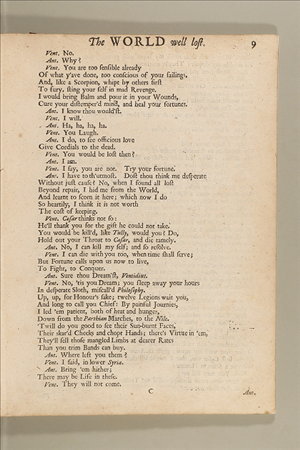 The WORLD well lost. 9
Vent. No.
Ant. Why?
Vent. You are too sensible already
Of what y'ave done, too conscious of your failings,
And, like a Scorpion, whipt by others first
To fury, sting your self in mad Revenge.
I would bring Balm and pour it in your Wounds,
Cure your distemper'd mind, and heal your fortunes.
Ant. I know thou would'st.
Vent. I will.
Ant. Ha, ha, ha, ha.
Vent. You Laugh.
Ant. I do, to see officious love
Give Cordials to the dead.
Vent. You would be lost then?
Ant. I am.
Vent. I say, you are not. Try your fortune.
Ant. I have to th'utmost. Dost thou think me desperate
Without just cause? No, when I found all lost
Beyond repair, I hid me from the World,
And learnt to scorn it here; which now I do
So heartily, I think it is not worth
The cost of keeping.
Vent. Cæsar thinks not so:
He'll thank you for the gift he could not take.
You would be kill'd, like Tully, would you? Do,
Hold out your Throat to Cæsar, and die tamely.
Ant. No, I can kill my self; and so resolve.
Vent. I can die with you too, when time shall serve;
But Fortune calls upon us now to live,
To Fight, to Conquer.
Ant. Sure thou Dream'st, Ventidius.
Vent. No, 'tis you Dream; you sleep away your hours
In desperate Sloth, miscall'd Philosophy.
Up, up, for Honour's sake; twelve Legions wait you,
And long to call you Chief: By painful Journies,
I led 'em patient, both of heat and hunger,
Down from the Parthian Marches, to the Nile.
'Twill do you good to see their Sun-burnt Faces,
Their skar'd Cheeks and chopt Hands; there's Virtue in 'em,
They'll sell those mangled Limbs at dearer Rates
Than you trim Bands can buy.
Ant. Where left you them?
Vent. I said, in lower Syria.
Ant. Bring 'em hither;
There may be Life in these.
Vent. They will not come.
C Ant.